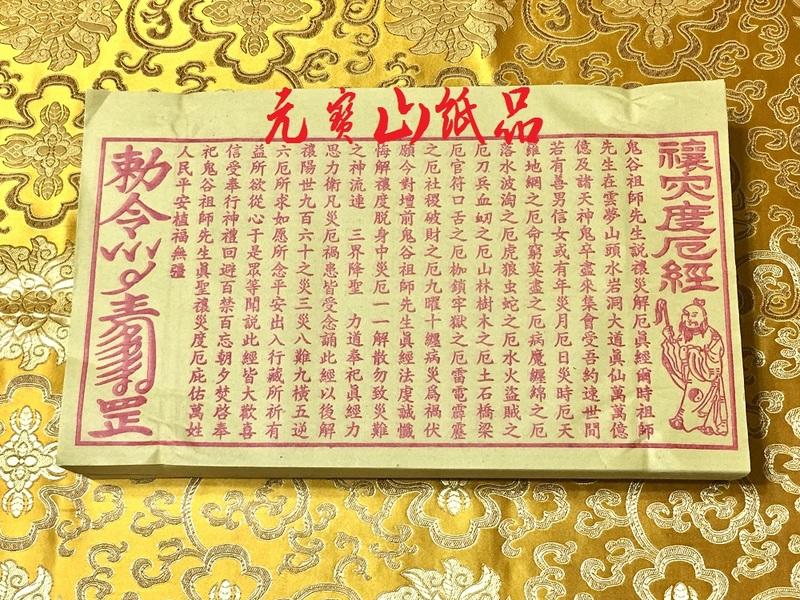 元寶山紙品
禳災度厄經
鬼谷祖師先生説禳災解厄眞經爾時祖師
先生在雲夢山頭水岩洞大道眞仙萬萬億
億及諸天神鬼卒盡來集會受吾約速世間
若有善男信女或有年災月厄日災時厄天
羅地網之厄命窮莫盡之厄病魔纏綿之厄
落水波淘之厄虎狼虫蛇之厄水火盜賊之
厄刀兵血刼之厄山林樹木之厄土石橋梁
厄官符口舌之厄枷鎖牢獄之厄雷電霹靂
之厄社稷破財之厄九曜十纏病災爲禍伏
願今對壇前鬼谷祖師先生眞經法虔誠懺
悔解禳度脱身中災厄一一解散勿致災難
之神流連 三界降聖 力道奉祀眞經力
思力衛凡災厄禍患皆受念誦此經以後解
禳陽世九百六十之災三災八難九橫五逆
六厄所求如愿所念平安出入行藏所祈有
益所欲從心于是眾等聞説此經皆大歡喜
信受奉行神禮回避百禁百忘朝夕焚啓奉
祀鬼谷祖師先生眞聖禳災度厄庇佑萬姓
人民平安植福無疆
勅令 罡